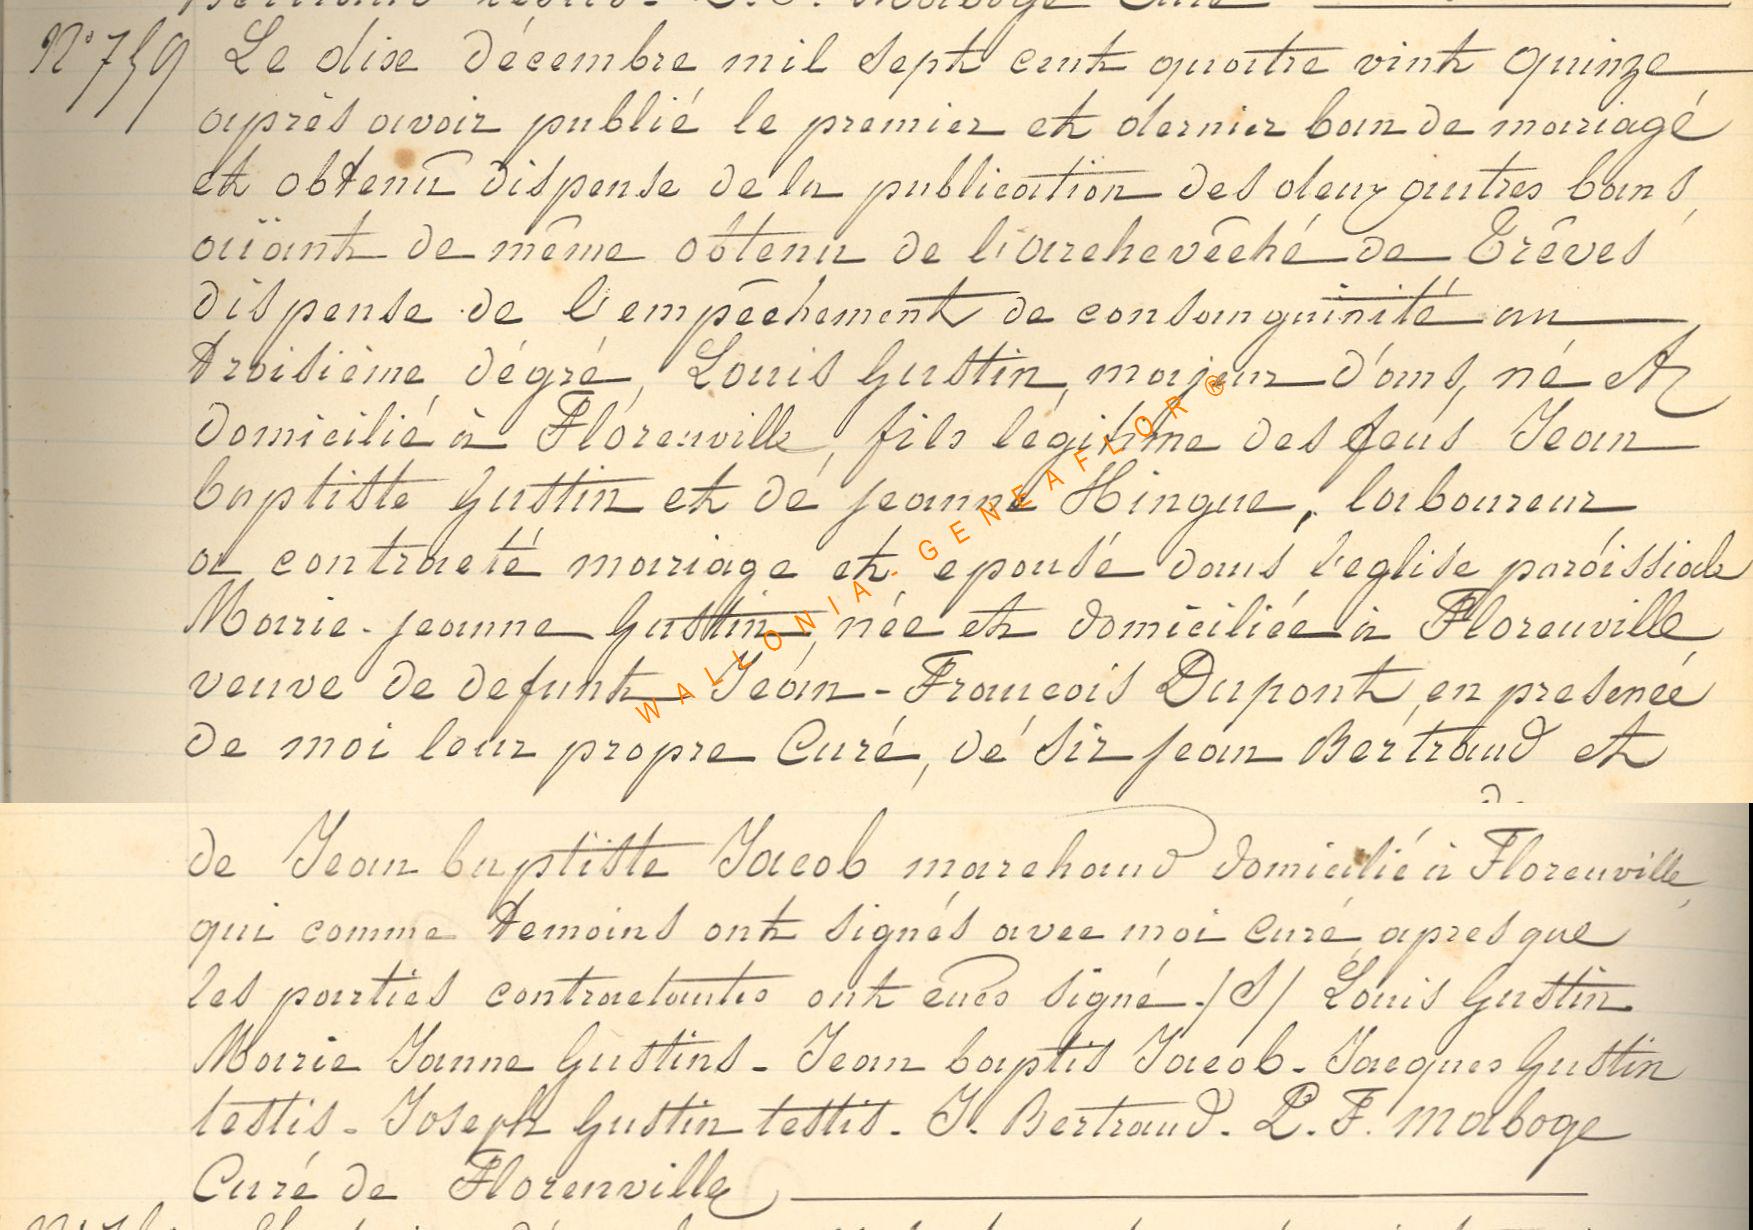 N° 759 Le dixe décembre mil sept cent quatre vint quinze
après avoir publié le premier et dernier ban de mariagé
et obtenu dispense de la publication des deux autres bans,
aïant de même obtenu de l'archevêché de Trêves
dispense de l'empêchement de consanguinité au
troisième dégré, Louis Gustin, majeur d'ans, né et
domicilié à Florenville, fils légitime des feus Jean
baptiste Gustin et de jeanne Hingue, laboureur
a contracté mariage et epousé dans l'eglise paroissiale
Marie-jeanne Gustin, née et domiciliée à Florenville
veuve de defunt Jean-Francois Dupont, en presencé
de moi leur propre Curé, de Sir jean Bertrand et
de Jean baptiste Jacob marchand domicilié à Florenville,
qui comme temoins ont signés avec moi curé apres que
les parties contractantes ont eues signé. /S/ Louis Gustin
Marie Janne Gustins - Jean baptis Jacob - Jacques Gustin
testis - Joseph Gustin testis - J. Bertrand - P. F. Maboge
Curé de Florenville
WALLONIA-GENEAFLOR®